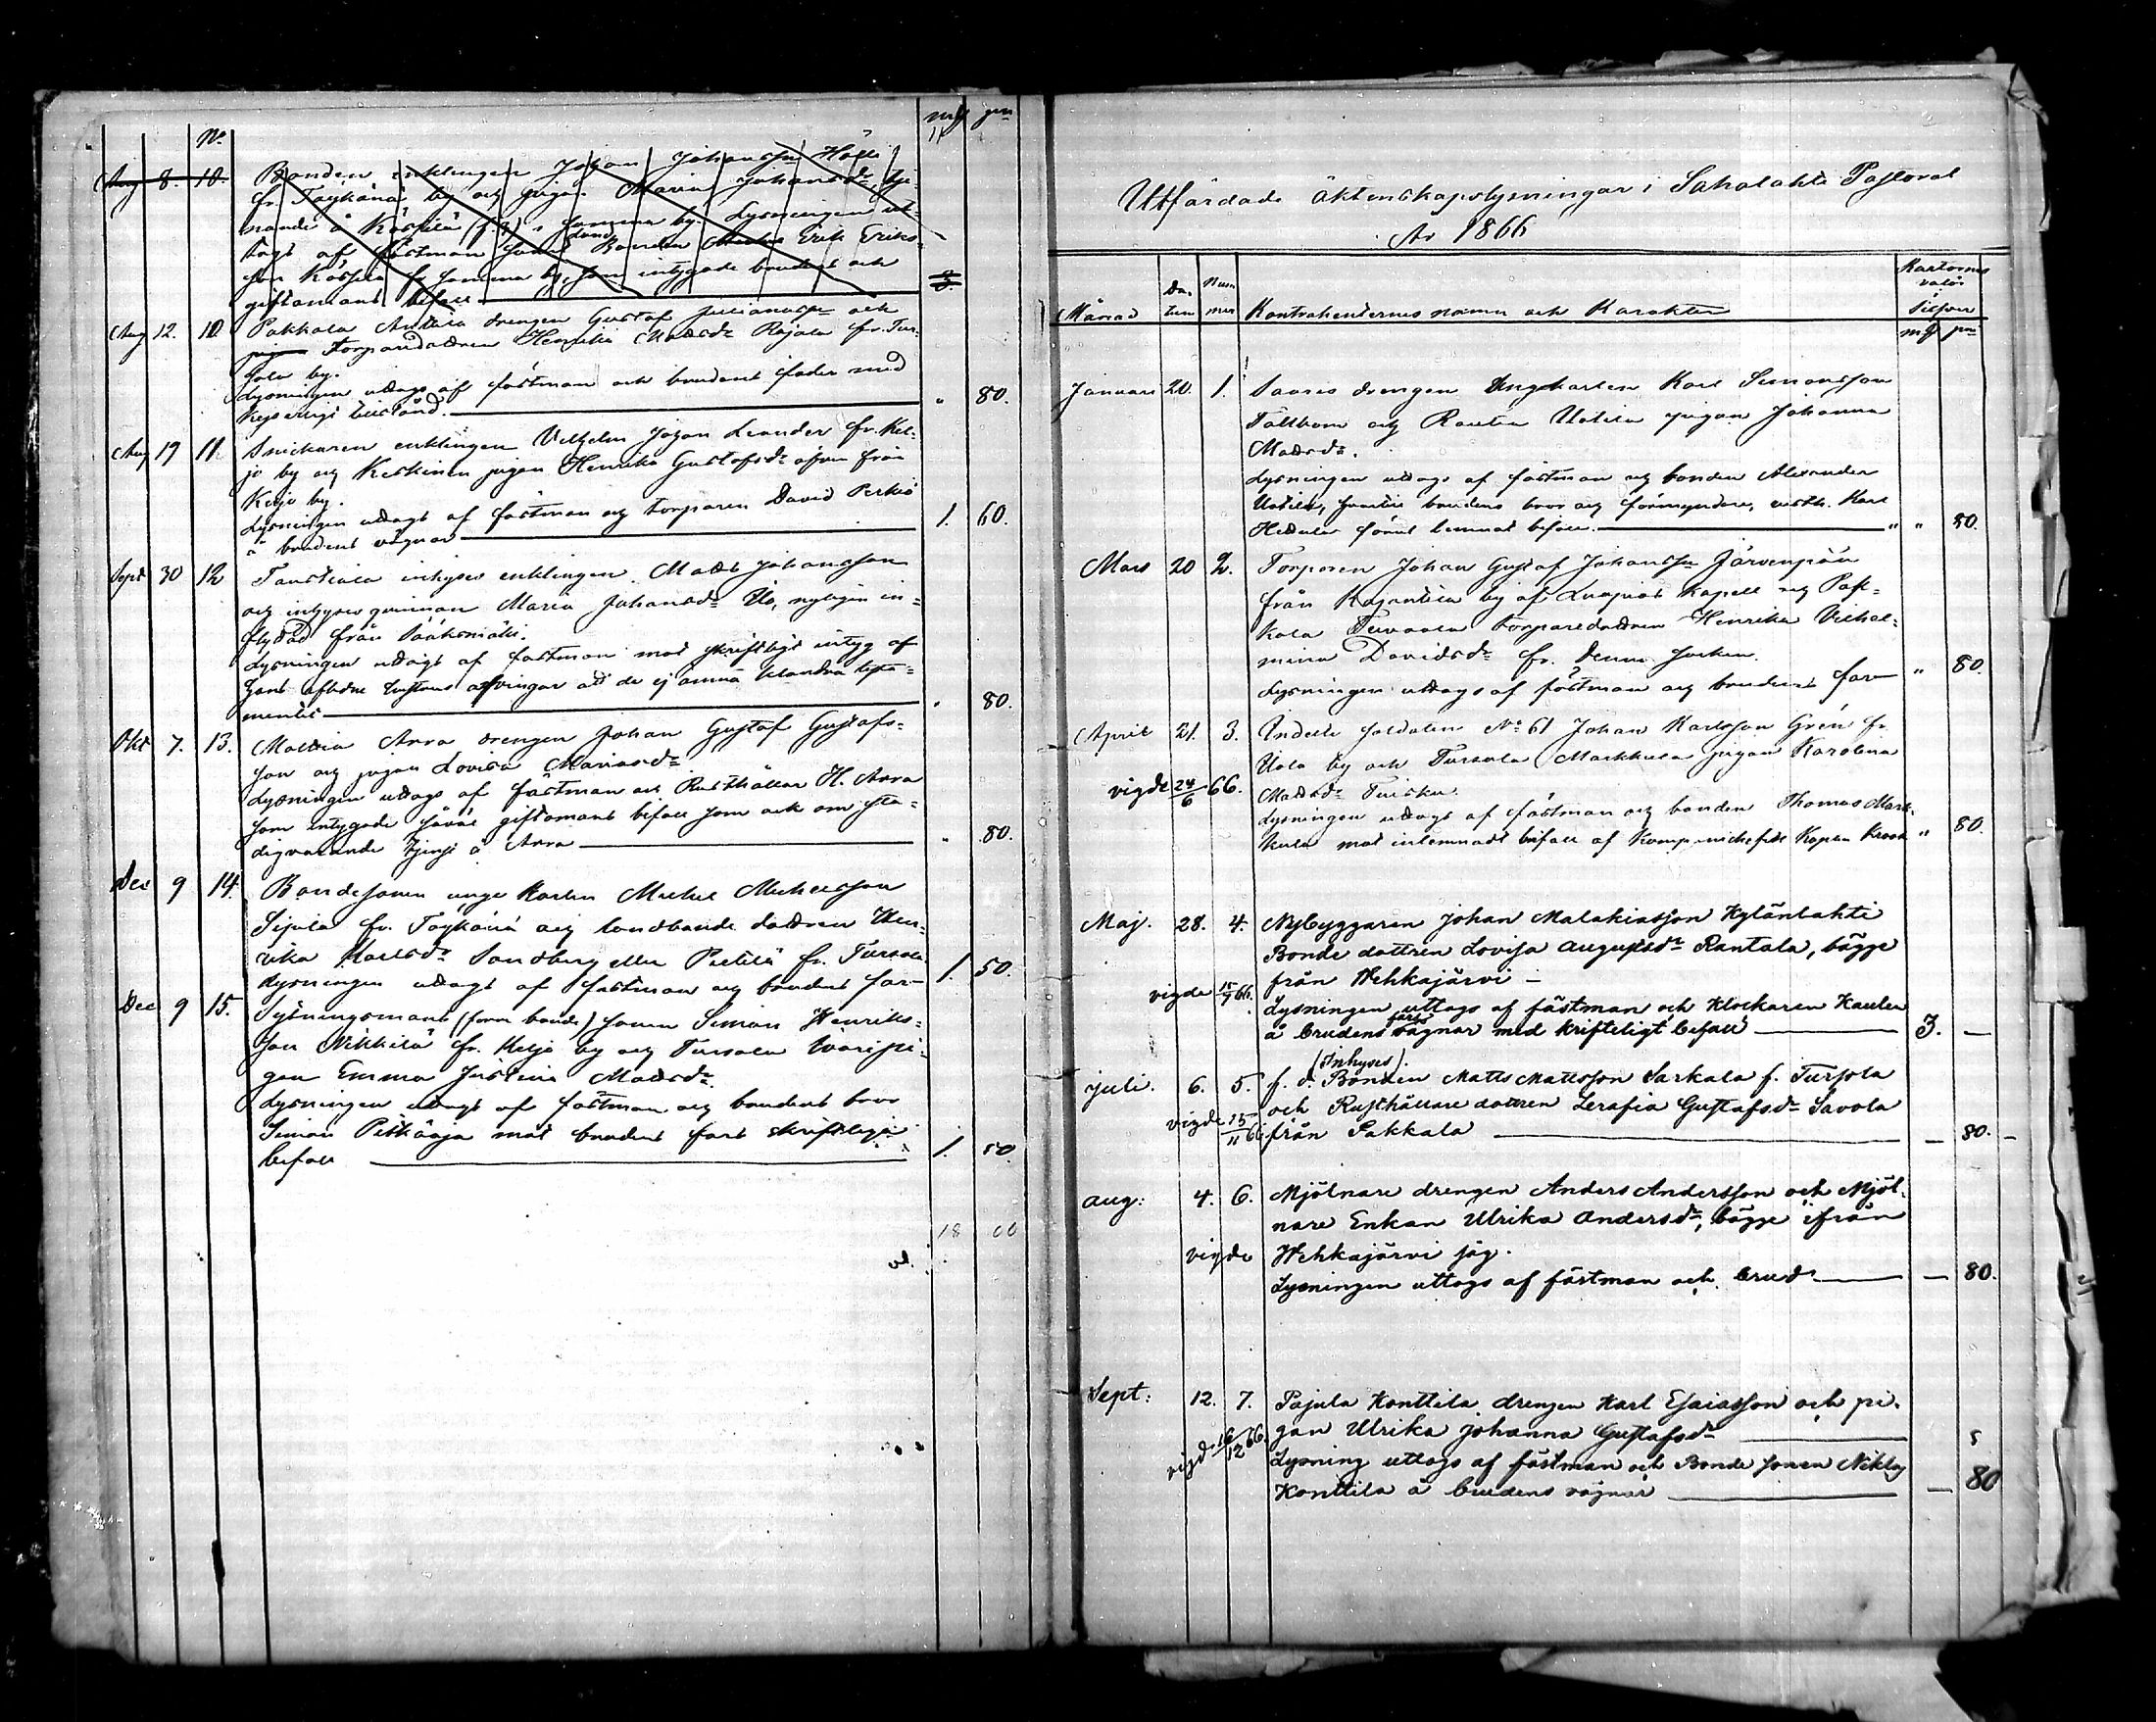 No
mk pni
Aug 8. 10. Bonden enklingen Johan Johansson Hölli
fr. Töykänä by och pigan Maria Johansdr, tje-
nande å Köppilä i samma by. Lysningen ut-
togs af fästman samt Bonden Erik Eriks-
son Köppilä fr samma by, som intygade brudens och
giftomans bifall 3.
Aug 12. 10. Pakkala Anttila drengen Gustaf Julianasson och
Torparedottren Henrika Mattsdr Rajala fr. Tur-
sola by.
Lysningen uttogs af fästman och brudens fader med
" 80.
Aug 19 11. Snickaren enklingen Vilhelm Johan Leander fr. Kel-
jo by och Keskinen pigan Henrika Gustafsdr äfven från
Keljo by.
Lysningen uttogs af fästman och torparen David Perkiö
å brudens vägnar 1. 60.
Sept 30 12 Taustiala inhyses enklingen Matts Johansson
och inhyses qvinnan Maria Johansdr Uo, nyligen in-
flyttad från Sääksmäki.
Lysningen uttogs af fästman mot skriftligt intyg af
hans aflidne hustrus arfvingar att de ej ämna klandra testa-
mentet " 80.
Okt 7. 13. Mattia Arra drengen Johan Gustaf Gustafs-
son och pigan Lovisa Mariasdr
Lysningen uttogs af fästman och Rusthållar H. Arra
som intygade såväl giftomans bifall som ock om sta-
digvarande tjenst å Arra " 80.
Dec 9 14. Bondesonen unge karlen Michel Michelsson
Sipila fr. Töykänä och landbonde dottren Hen-
rika Karlsdr Sandberg eller Pietilä fr. Tursola
Lysningen uttogs af fästman och brudens far 1. 50.
Dec 9 15. Sytningsmans (forne bonde) sonen Simon Henriks-
son Nikkilä fr. Keljo by och Tursola Wäri pi-
gan Emma Justina Mattsdr.
Lysningen uttogs af fästman och brudens bror
Simon Pitkäoja mot brudens fars skriftliga
bifall 1. 50.
18 00
Utfärdade äktenskapslysningar i Sahalahti Pastorat
År 1866
Månad Da-tum Num-mer Kontrahenternes namn och Karakter Kartornes valör Silfver
mk pni
Januari 20. 1. Saaris drengen Ungkarlen Karl Simonsson
Tallbom och Rautu Uotila pigan Johanna
Mattsdr.
Lysningen uttogs af fästman och bonden Alexander
Uotila, brudens bror och förmyndare, Karl
förut lemnat bifall. " 80.
Mars 20 2. Torparen Johan Gustaf Johansson Järvenpää
från Rajantila by af Luopiois Kapell och Pak-
kala Tuvaala torparedottren Henrika Vilhel-
mina Davidsdr fr. denna socken.
Lysningen uttogs af fästman och brudens far " 80.
April 21. 3. Indelte soldaten No 61 Johan Karlsson Grén fr.
Isola by och Tursola Markkula pigan Karolina
vigde 24/6 66. Mattsdr Tuisku.
Lysningen uttogs af fästman och bonden Thomas Mark-
kula mot inlemnadt bifall af Kompanichefen Kapten Krook " 80.
Maj. 28. 4. Nybyggaren Johan Malakiasson Kylänlahti
Bonde dottren Lovisa Augustsdr Rantala, bägge
från Wehkajärvi –
vigde 15/7 66. Lysningen uttogs af fästman och Klockaren Kaulen
å brudens fars vägnar med skrifteligt bifall 3. —
juli. 6. 5. f. d. Bonden (Inhyses). Matts Mattsson Sarkala f. Tursola
och Rusthållare dottren Serafia Gustafsdr Savola
vigde 25/11 66 från Pakkala — 80. –
Aug: 4. 6. Mjölnare drengen Anders Andersson och Mjöl-
nare Enkan Ulrika Andersdr, bägge ifrån
vigde Wehkajärvi såg.
Lysningen uttogs af fästman och brud — 80.
Sept: 12. 7. Pajula Konttila drengen Karl Esaiasson och pi-
gan Ulrika Johanna Gustafsdr
vigd 16/12 66. Lysning uttogs af fästman och Bonde sonen Niklas
Konttila å brudens vägnar — 80